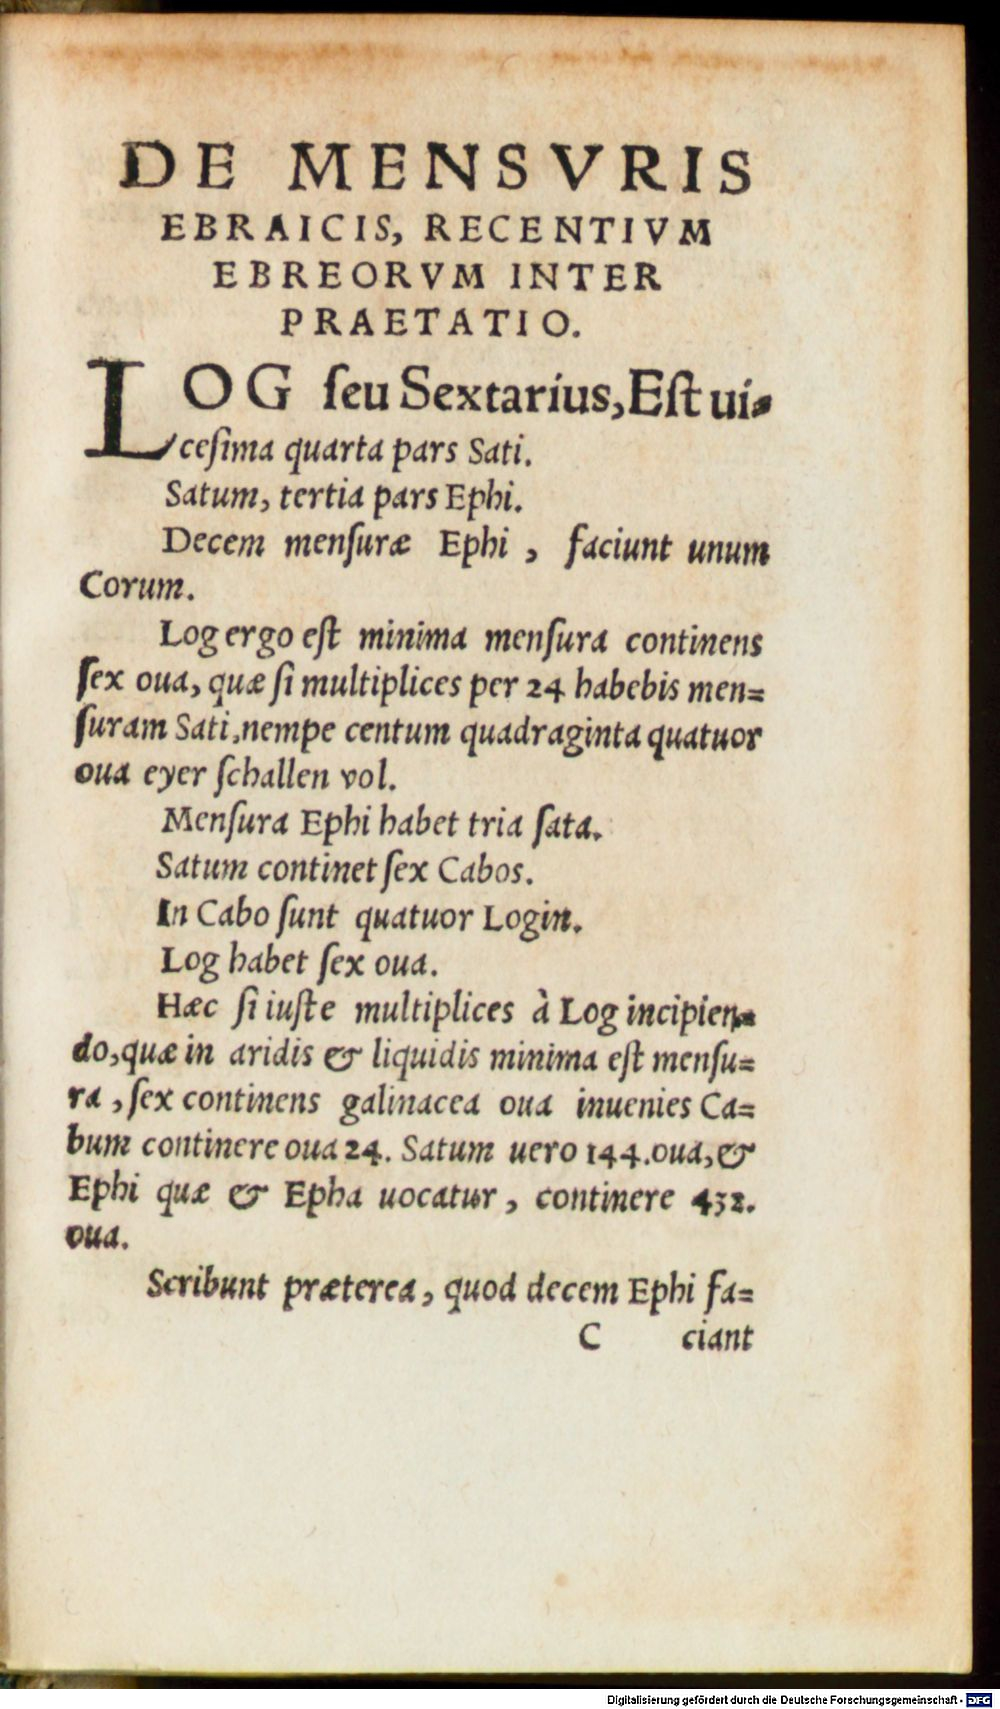 DE MENSVRIS
EBRAICIS, RECENTIVM
EBREORVM INTER
PRAETATIO.
LOG ſeu Sextarius, Eſt ui-
ceſima quarta pars Sati.
Satum, tertia pars Ephi.
Decem menſuræ Ephi, faciunt unum
Corum.
Log ergo eſt minima menſura continens
ſex oua, quæ ſi multiplices per 24 habebis men=
ſuram Sati, nempe centum quadraginta quatuor
oua eyer ſchallen vol.
Menſura Ephi habet tria ſata.
Satum continet ſex Cabos.
In Cabo ſunt quatuor Login.
Log habet ſex oua.
Hæc ſi iuſte multiplices à Log incipien=
do, quæ in aridis & liquidis minima eſt menſu=
ra, ſex continens galinacea oua inuenies Ca=
bum continere oua 24. Satum uero 144. oua, &
Ephi quæ & Epha uocatur, continere 432.
oua.
Scribunt præterea, quod decem Ephi fa=
C ciant
Digitalisierung gefördert durch die Deutsche Forschungsgemeinschaft - DFG